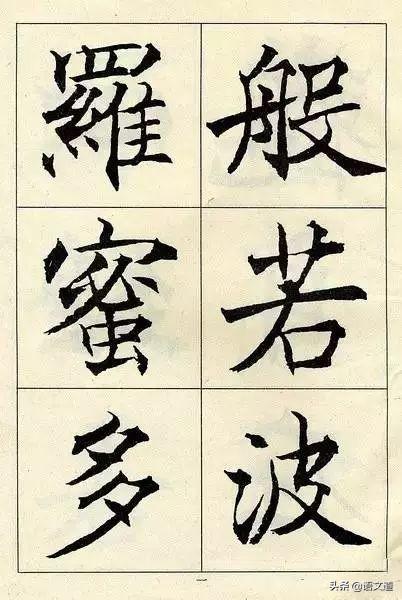 般若波
羅蜜多
一
头条 @语文道